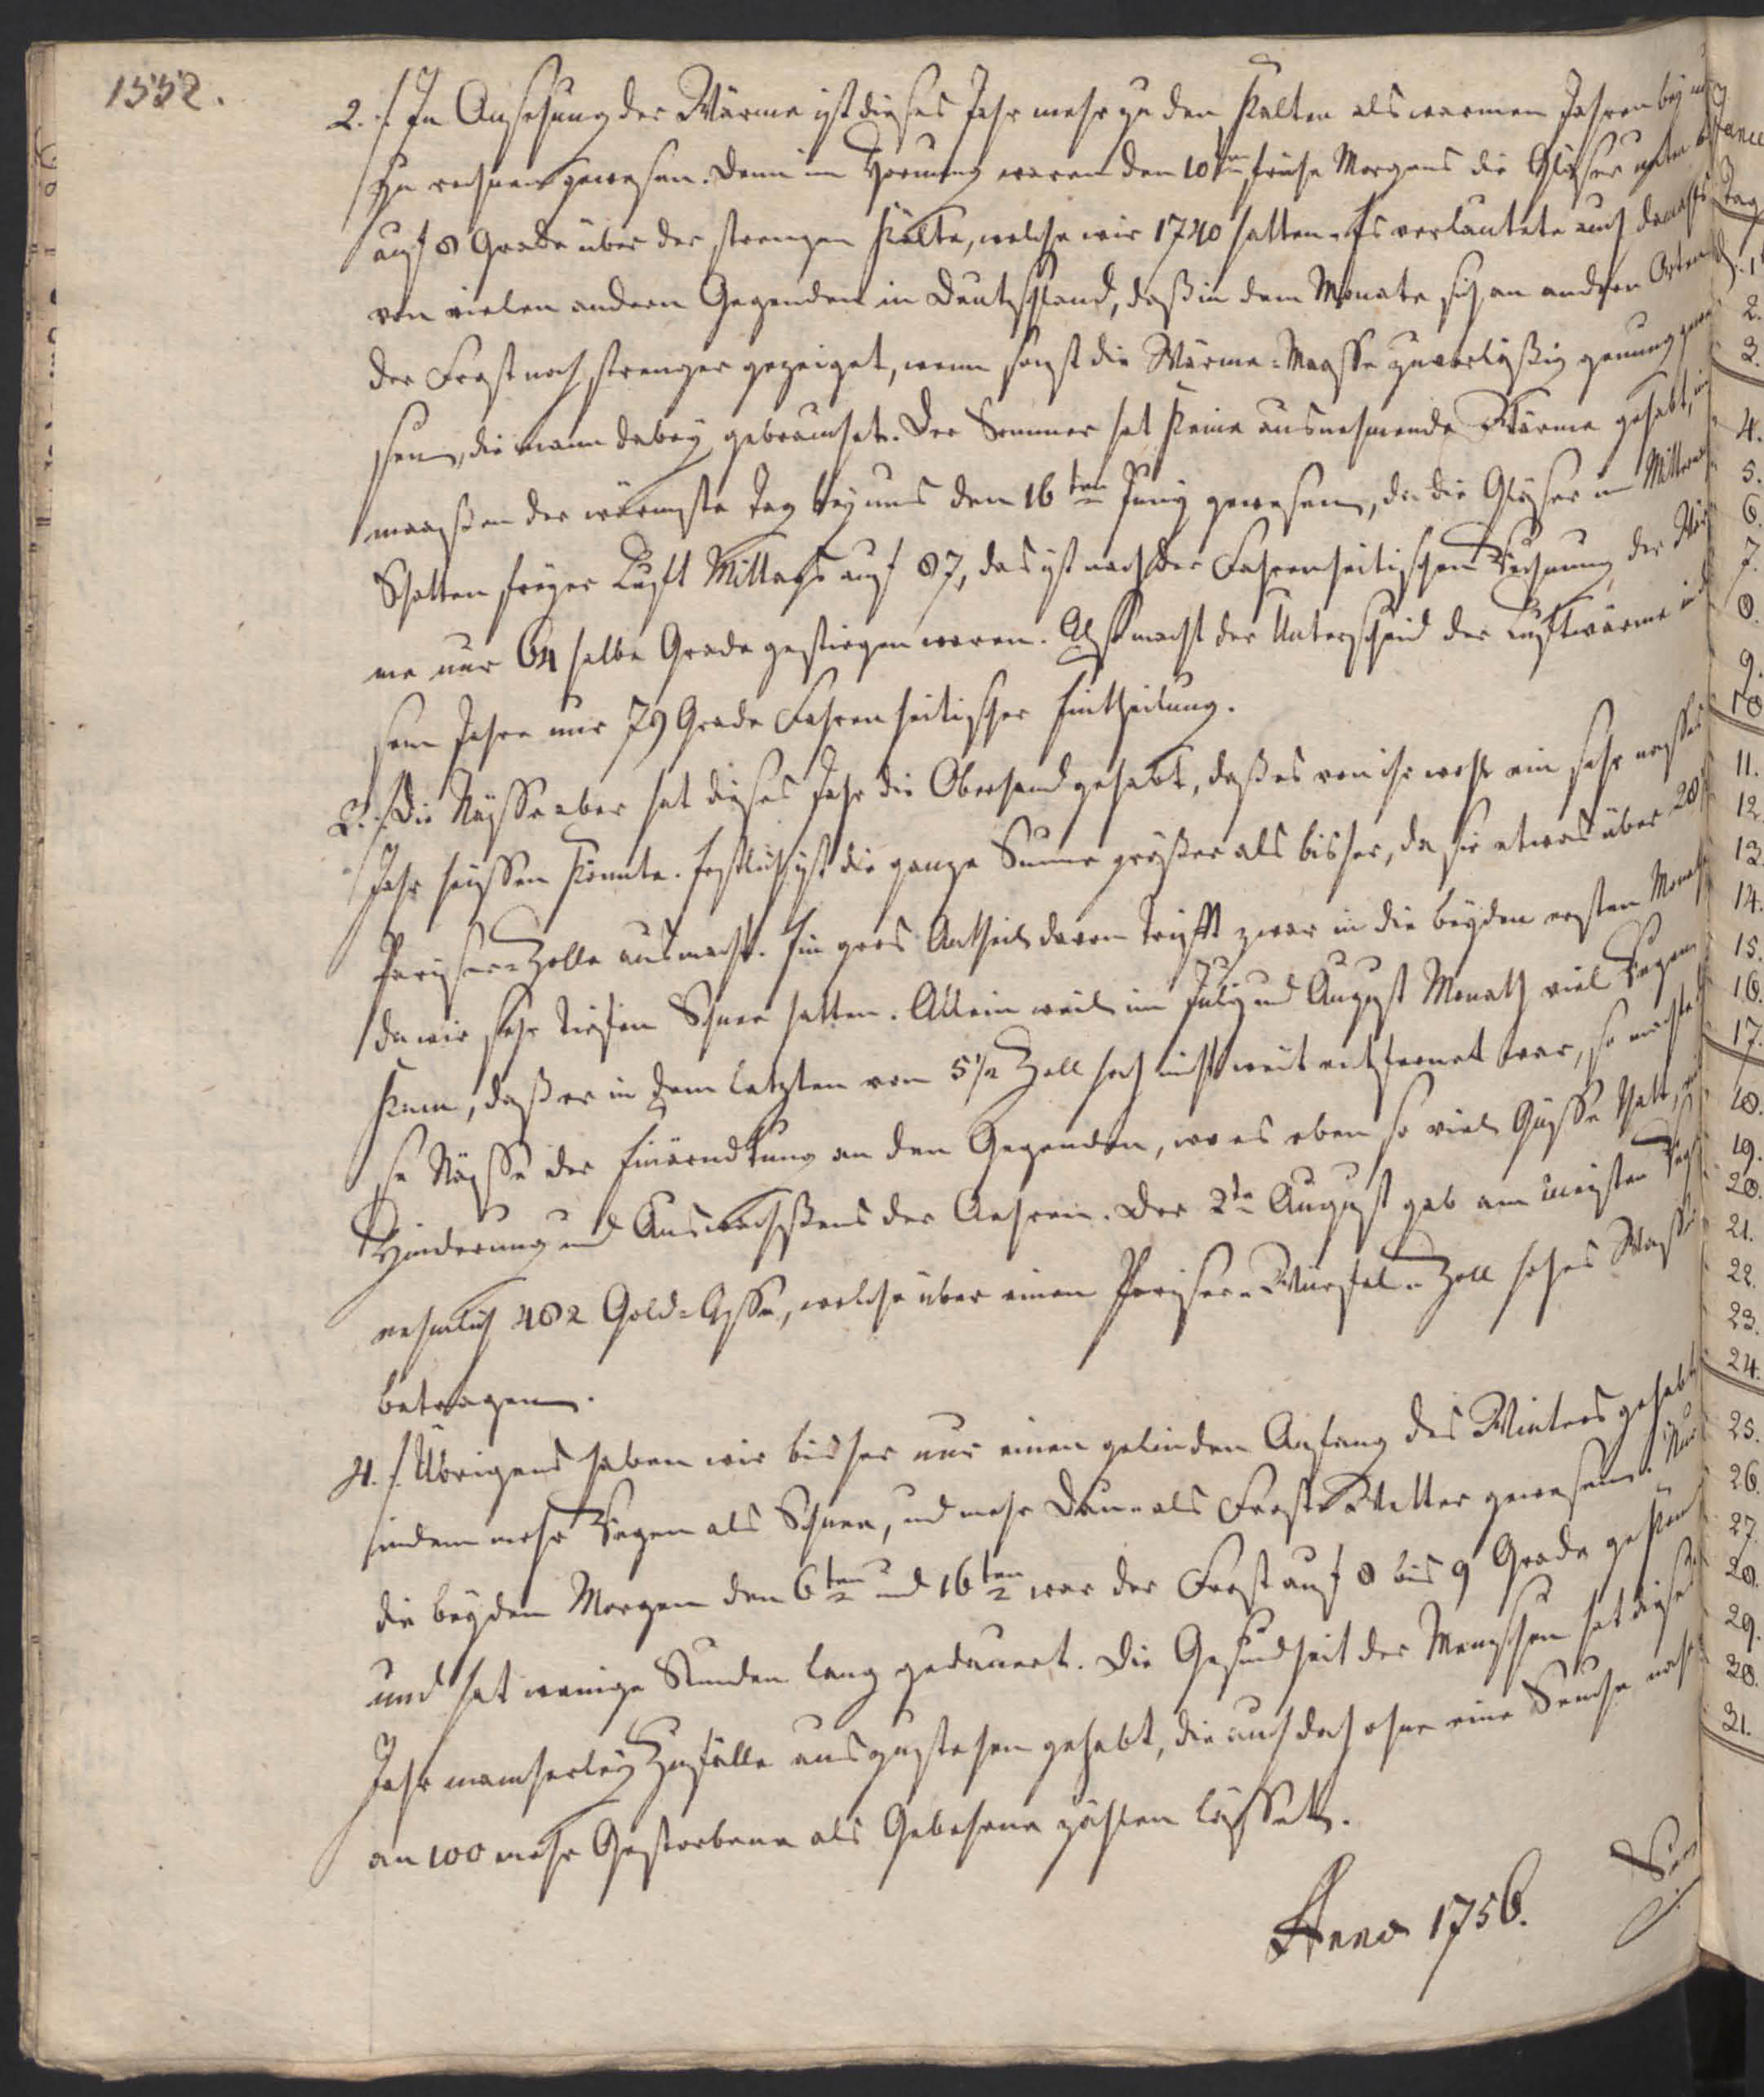 1552.
2. /. In Ansehung der Wärme ist dieses Jahr mehr zu den Kalten als warmen Jahren bey
zu rechnen gewesen. Denn im Hornung waren den 10ten frühe Morgens die Gläser
auf 8 Grade über der strengen Kälte, welche wir 1740 hatten. Es verlautete auch
von vielen andern Gegenden in Deutschland, daß in dem Monate sich an andern Orten
der Frost noch strenger gezeiget, wenn sonst die Wärme-Maasse zuverläßig genung
sen, die man dabey gebrauchet. Der Sommer hat keine ausnehmende Wärme gehabt,
maaßen der wärmste Tag bey uns den 16ten Juny gewesen, da die Gläser im
Schatten freyer Luft Mittags auf 87, das ist nach der Fahrenheitischen Rechnung der
me nur 64 halbe Grade gestiegen waren. Also macht der Unterscheid der Luftwärme in
sem Jahre nur 79 Grade Fahrenheitischer Eintheilung.
3. /. Die Nässe aber hat dieses Jahr die Oberhand gehabt, daß es von ihr wohl ein sehr nasses
Jahr heissen könnte. Erstlich ist die ganze Summe größer als bisher, da sie etwas über 28
Pariser-Zolle ausmacht. Ein gros Antheil davon trifft zwar in die beyden ersten
da wir sehr tiefen Schnee hatten. Allein weil im July und August Monath viel Regen
kam, daß er in dem letzten von 5 1/2 Zoll hoch nicht weit entfernet war, so machte
se Nässe der Einärndtung an den Gegenden, wo es eben so viel Güsse that,
Hinderung und Auswachsens der Aehren. Der 2te August gab am meisten
nehmlich 482 Gold-Asse, welche über einen Pariser-Würfel-Zoll hohes
betragen.
4. /. Übrigens haben wir bisher nur einen gelinden Anfang des Winters gehabt
indem mehr Regen als Schnee, und mehr Taue als Frost-Wetter gewesen. Nur
die beyden Morgen den 6ten und 16ten war der Frost auf 8 bis 9 Grade
und hat wenige Stunden lang gedauert. Die Gesundheit der Menschen hat dieses
Jahr mancherley Zufälle auszustehen gehabt, die auch doch ohne eine Seuche
an 100 mehr Gestorbene als Gebohrne zählen lässet.
Anno 1756.
2.
3.
4.
5.
6.
7.
8.
9.
10
11.
12.
13.
14.
15.
16.
17.
18.
19.
20.
21.
22.
23.
24.
25.
26.
27.
28.
29.
30.
31.